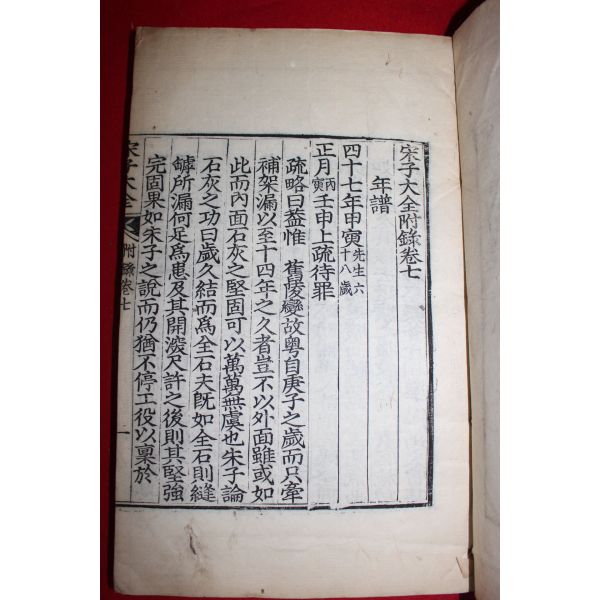 宋子大全附錄卷七
年譜
四十七年甲寅先生六十八歲
正月丙寅壬申上疏待罪
疏略曰益惟 舊陵變故粤自庚子之歲而只牽
補架漏以至十四年之久者豈不以外面雖或如
此而內面石灰之堅固可以萬萬無虞也朱子論
石灰之功曰歲久結而爲全石夫旣如全石則縫
罅所漏何足爲患及其開潑尺許之後則其堅强
完固果如朱子之說而仍猶不停工役以稟於
宋子大全 附錄卷七 一